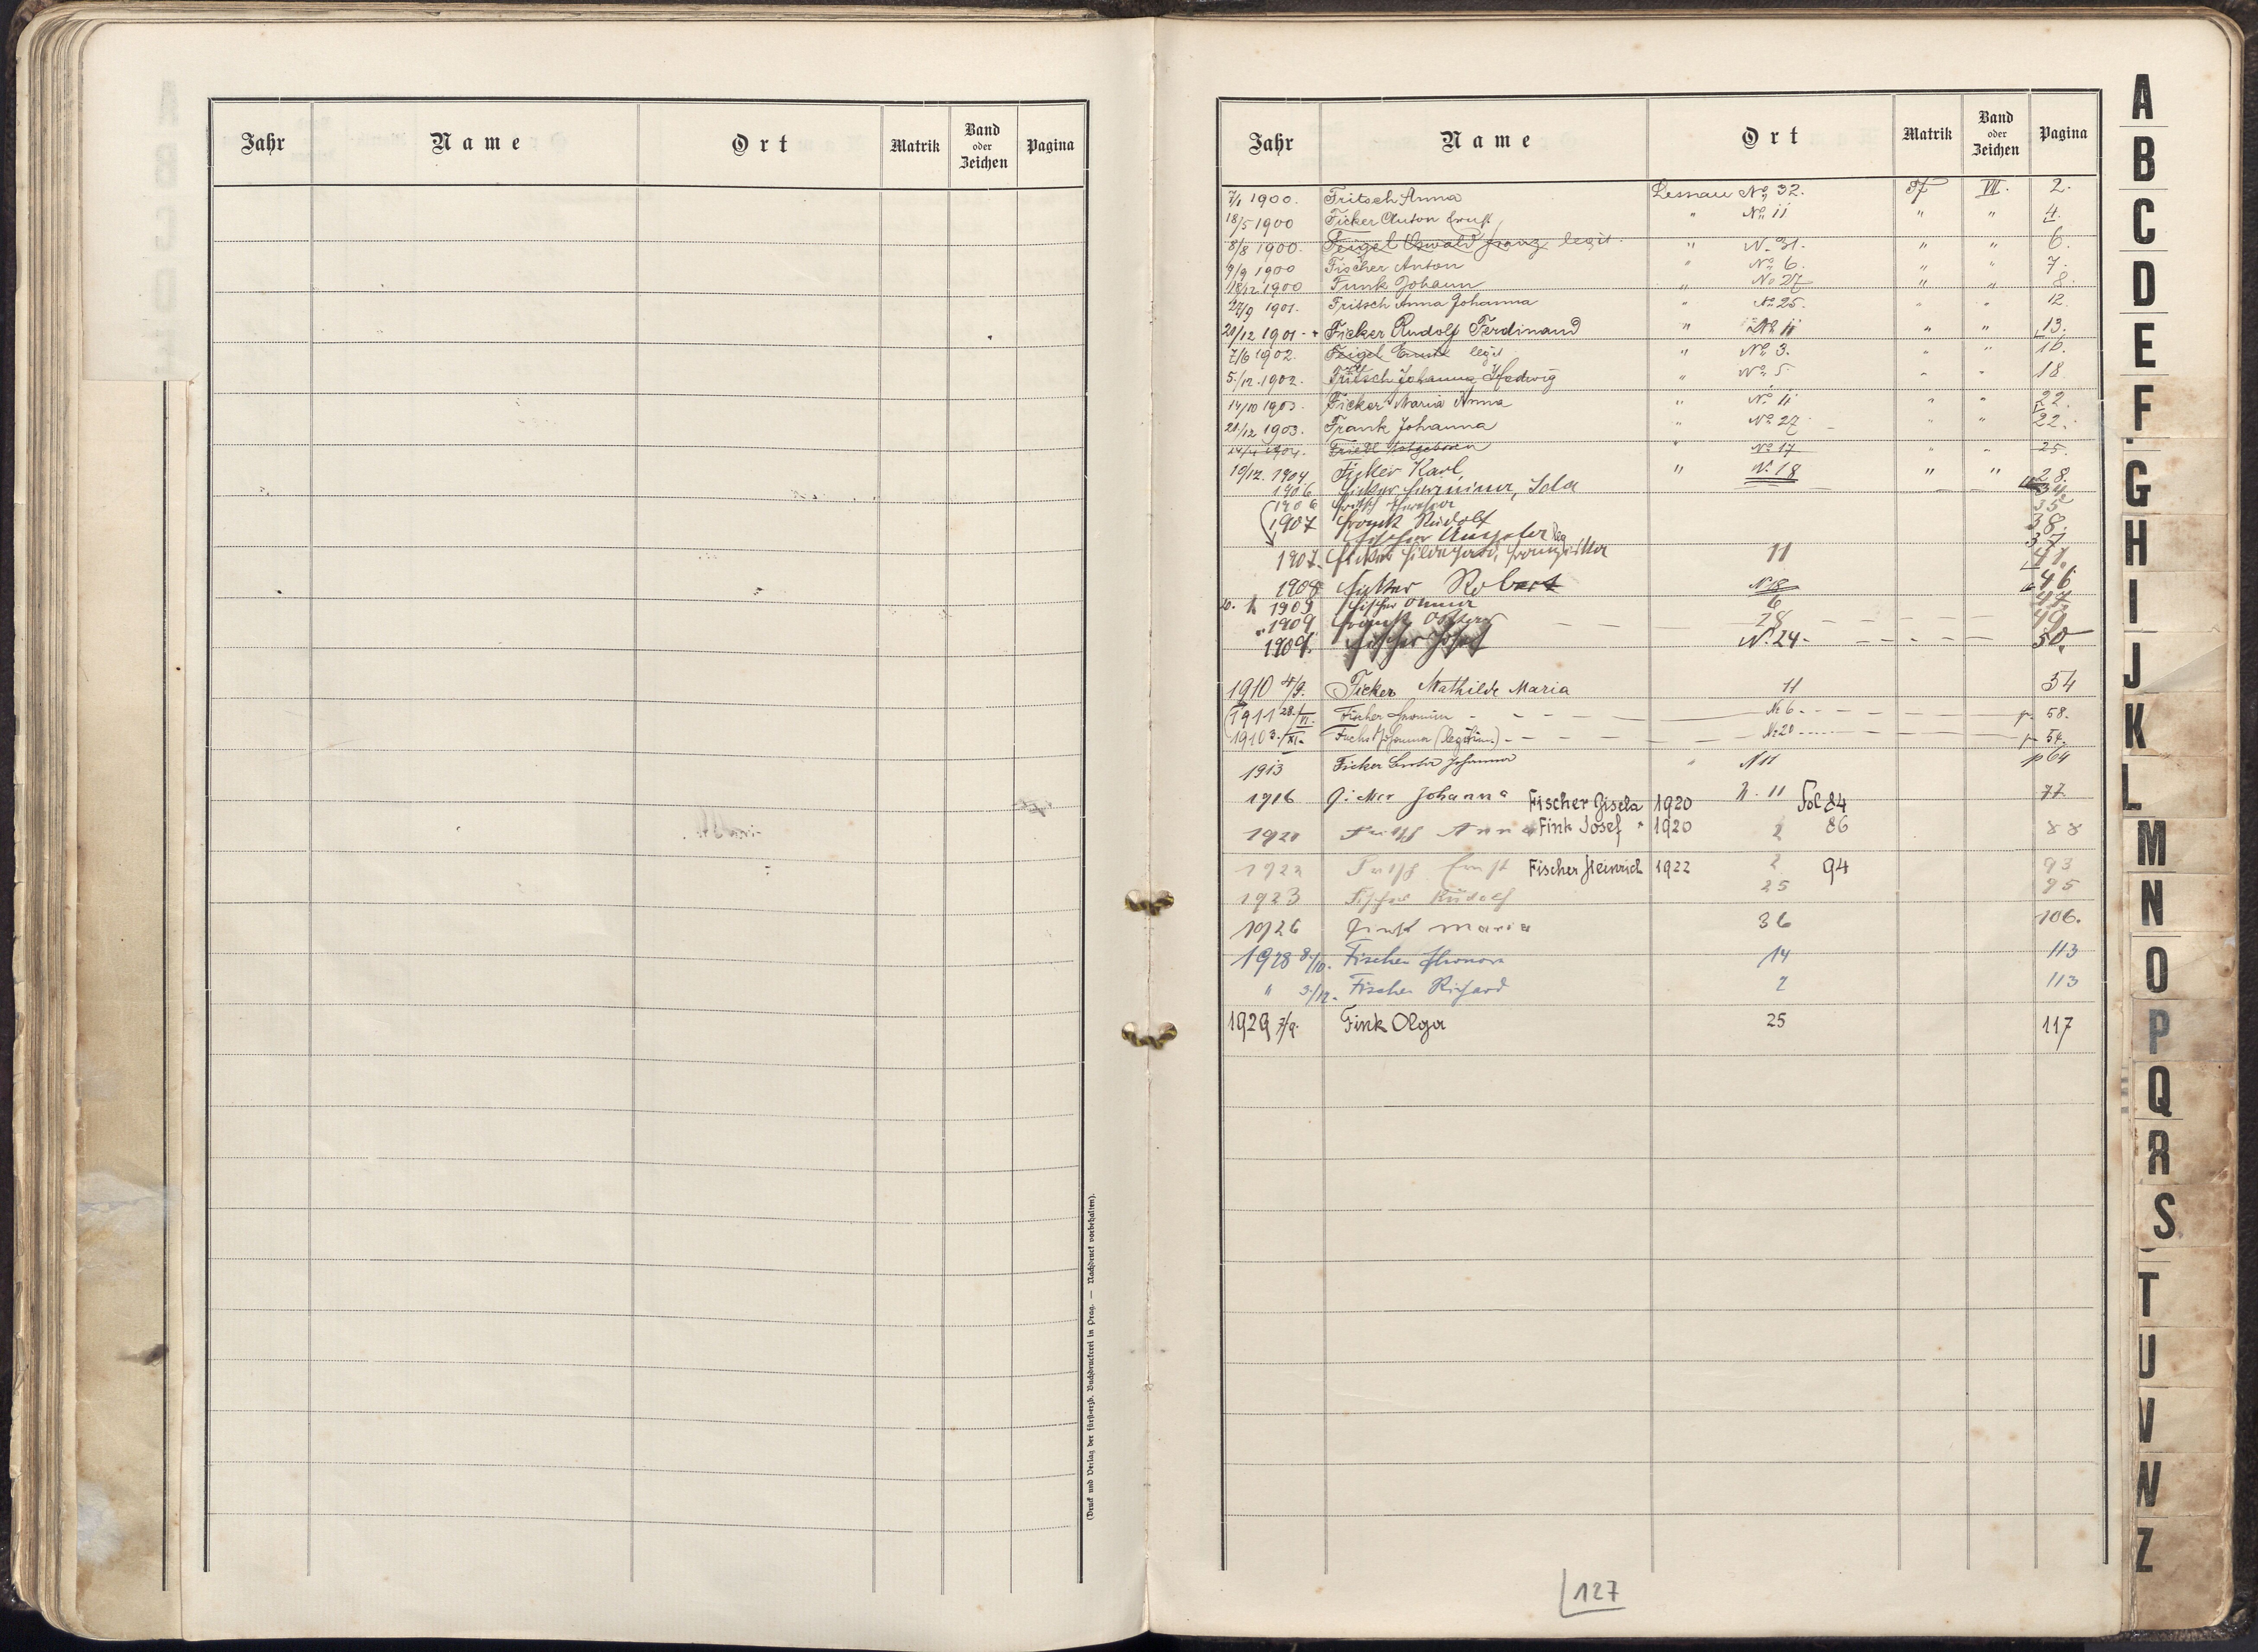 Jahr Name Ort Matrik Band oder Zeichen Pagina
(Druck und Verlag der fürsterzb. Buchdruckerei in Prag. — Nachdruck vorbehalten).
Jahr Name Ort Matrik Band oder Zeichen Pagina
7/1 1900. Fritsch Anna Lesnau No 32. VII. 2.
18/5 1900 Ficker Anton Ernst " No 11 " " 4.
8/8 1900. Feigel Oswald Franz legit. " N. 31. " " 6.
9/9 1900 Fischer Anton " No 6. " " 7.
18/12 1900 Funk Johann " No 27 " " 8.
27/9 1901. Fritsch Anna Johanna " No 25. " " 12.
21/12 1901 - + Ficker Rudolf Ferdinand " No 11 " " 13.
7/6 1902. Feigel Ernst legit " No 3. 16.
5./12. 1902. Fritsch Johanna Hedwig " No 5 " " 18.
14/10 1903. Ficker Maria Anna " No 11 " " 22.
21/12 1903. Frank Johanna " No 27 " " 22.
1904. Friedl Totgeboren " No 17 " " 25.
10/12. 1904. Ficker Karl " N. 18 " " 28.
1906 Ficker Hermine, Ida 34
1906 Fritsch 35
1907 Frank Rudolf 38.
Fischer 37
1907. Ficker Hildegard, 11 41.
1908 Ficker Robert N 18 46
1909 Fischer Anna 6 47.
" 1909 Frank 28 49
1909. Fischer Josef N. 24 - 50.
1910 4/9. Ficker Mathilde Maria 11 54
1911 28./VI. Fischer No 6 - p. 58.
1910 3./XI. Fuchs Johanna (legitim.) - No 20 p 54.
1913 Ficker Johanna " N 11 p 64
1916 Ficker Johanna N. 11 77.
Fischer Gisela 1920 Fol 84
1921 Fritsch Anna 2 88
Fink Josef 1920 86
1922 Fritsch Ernst 2 93
Fischer Heinrich 1922 94
1923 Fischer Rudolf 25 95
1926 Fink Maria 36 106.
1928 8./10. Fischer Eleonora 14 113
" 3./12. Fischer Richard 2 113
1929 7/9. Fink Olga 25 117
127
A
B
C
D
E
F
G
H
I
J
K
L
M
N
O
P
Q
R
S
T
U
V
W
Z